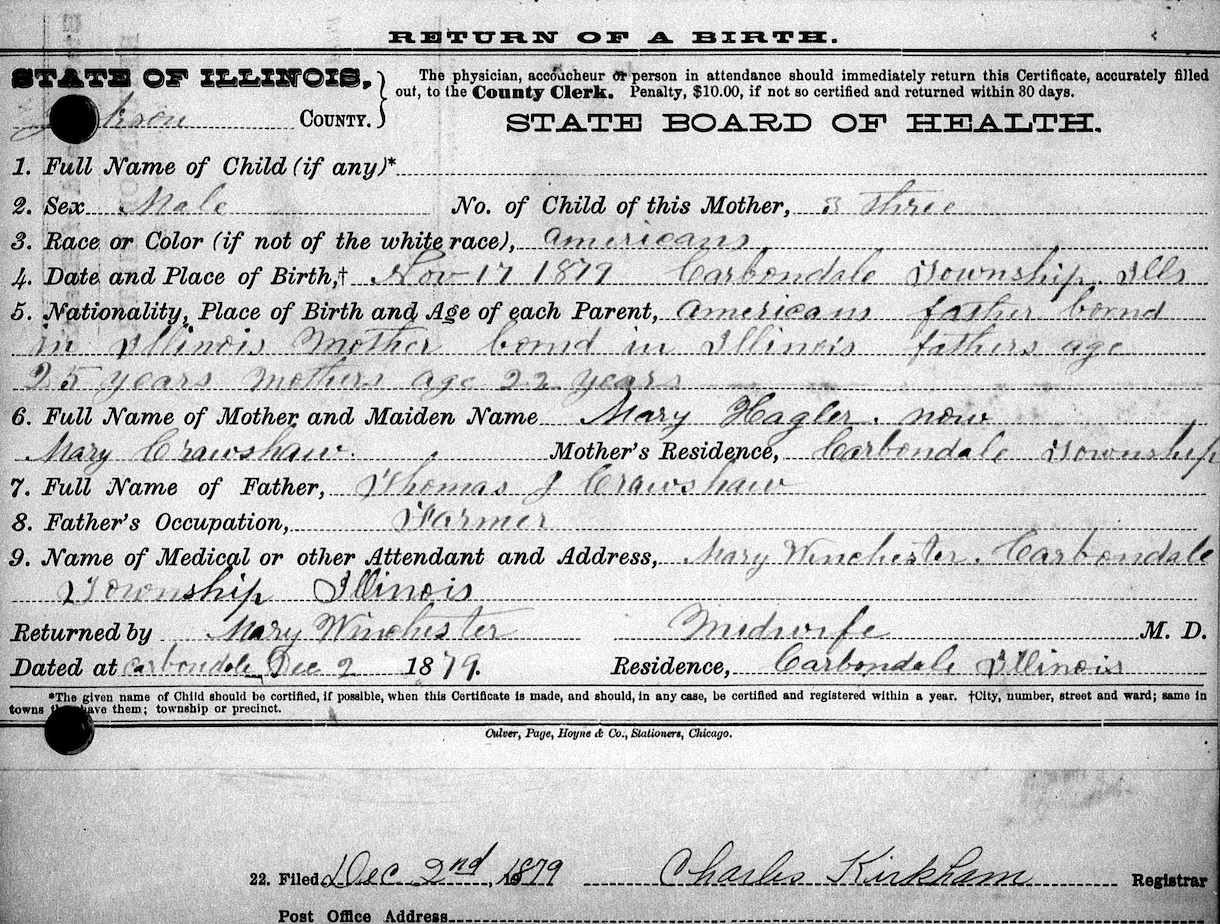 RETURN OF A BIRTH.
STATE OF ILLINOIS,
The physician, accoucheur or person in attendance should immediately return this Certificate, accurately filled
out, to the County Clerk. Penalty, $10.00, if not so certified and returned within 30 days.
COUNTY.
STATE BOARD OF HEALTH.
1. Full Name of Child (if any)*
2. Sex Male No. of Child of this Mother, 3 three
3. Race or Color (if not of the white race), americans
4. Date and Place of Birth,† Nov 17 1879 Carbondale Township Ills
5. Nationality, Place of Birth and Age of each Parent, americans father bornd
in Illinois Mother bornd in Illinois fathers age
25 years mothers age 22 years
6. Full Name of Mother and Maiden Name Mary Hagler. now
Mary Crawshaw. Mother's Residence, Carbondale Township
7. Full Name of Father, Thomas J Crawshaw
8. Father's Occupation, Farmer
9. Name of Medical or other Attendant and Address, Mary Winchester. Carbondale
Township Illinois
Returned by Mary Winchester Midwife M. D.
Dated at Carbondale Dec 2 1879. Residence, Carbondale Illinois
*The given name of Child should be certified, if possible, when this Certificate is made, and should, in any case, be certified and registered within a year. †City, number, street and ward; same in
towns have them; township or precinct.
Culver, Page, Hoyne & Co., Stationers, Chicago.
22. Filed Dec 2nd, 1879 Charles Kirkham Registrar
Post Office Address